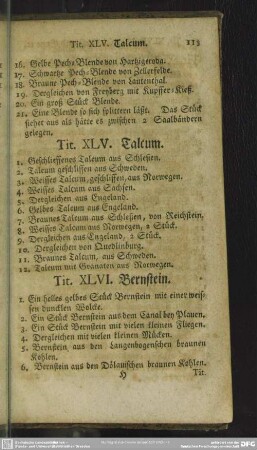 Tit. XLV. Talcum. 113
16. Gelbe Pech-Blende von Hartzigeroda.
17. Schwartze Pech-Blende von Zellerfelde.
18. Braune Pech-Blende von Lautenthal.
19. Dergleichen von Freyberg mit Kupffer-Kieß.
20. Ein groß Stück Blende.
21. Eine Blende so sich splittern läßt. Das Stück
siehet aus als hätte es zwischen 2 Saalbändern
gelegen.
Tit. XLV. Talcum.
1. Geschliessenes Talcum aus Schlesien.
2. Talcum geschlissen aus Schweden.
3. Weisses Talcum, geschlissen, aus Norwegen.
4. Weisses Talcum aus Sachsen.
5. Dergleichen aus Engeland.
6. Gelbes Talcum aus Engeland.
7. Braunes Talcum aus Schlesien, von Reichstein.
8. Weisses Talcum aus Norwegen, 2 Stück.
9. Dergleichen aus Engeland, 2 Stück.
10. Dergleichen von Quedlinburg.
11. Braunes Talcum, aus Schweden.
12. Talcum mit Granaten aus Norwegen.
Tit. XLVI. Bernstein.
1. Ein helles gelbes Stück Bernstein mit einer weis-
sen duncklen Wolcke.
2. Ein Stück Bernstein aus dem Canal bey Plauen.
3. Ein Stück Bernstein mit vielen kleinen Fliegen.
4. Dergleichen mit vielen kleinen Mücken.
5. Bernstein aus den Langenbogenschen braunen
Kohlen.
6. Bernstein aus den Dölauschen braunen Kohlen.
H Tit.